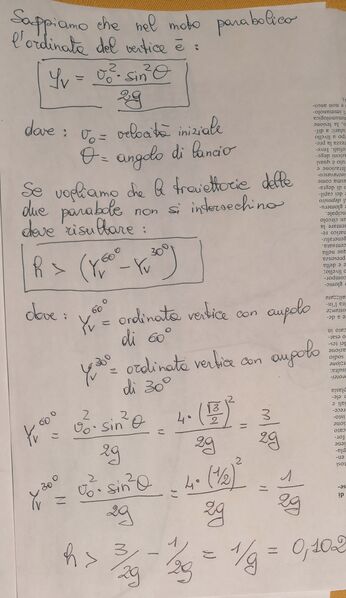 Sappiamo che nel moto parabolico
l'ordinata del vertice è :
Yv = v₀²·sin²θ / 2g
dove : v₀ = velocità iniziale
θ = angolo di lancio
Se vogliamo che le traiettorie delle
due parabole non si intersechino
deve risultare :
h > (Yv^60° - Yv^30°)
dove : Yv^60° = ordinata vertice con angolo
di 60°
Yv^30° = ordinata vertice con angolo
di 30°
Yv^60° = v₀²·sin²θ / 2g = 4·(√3/2)² / 2g = 3/2g
Yv^30° = v₀²·sin²θ / 2g = 4·(1/2)² / 2g = 1/2g
h > 3/2g - 1/2g = 1/g = 0,102